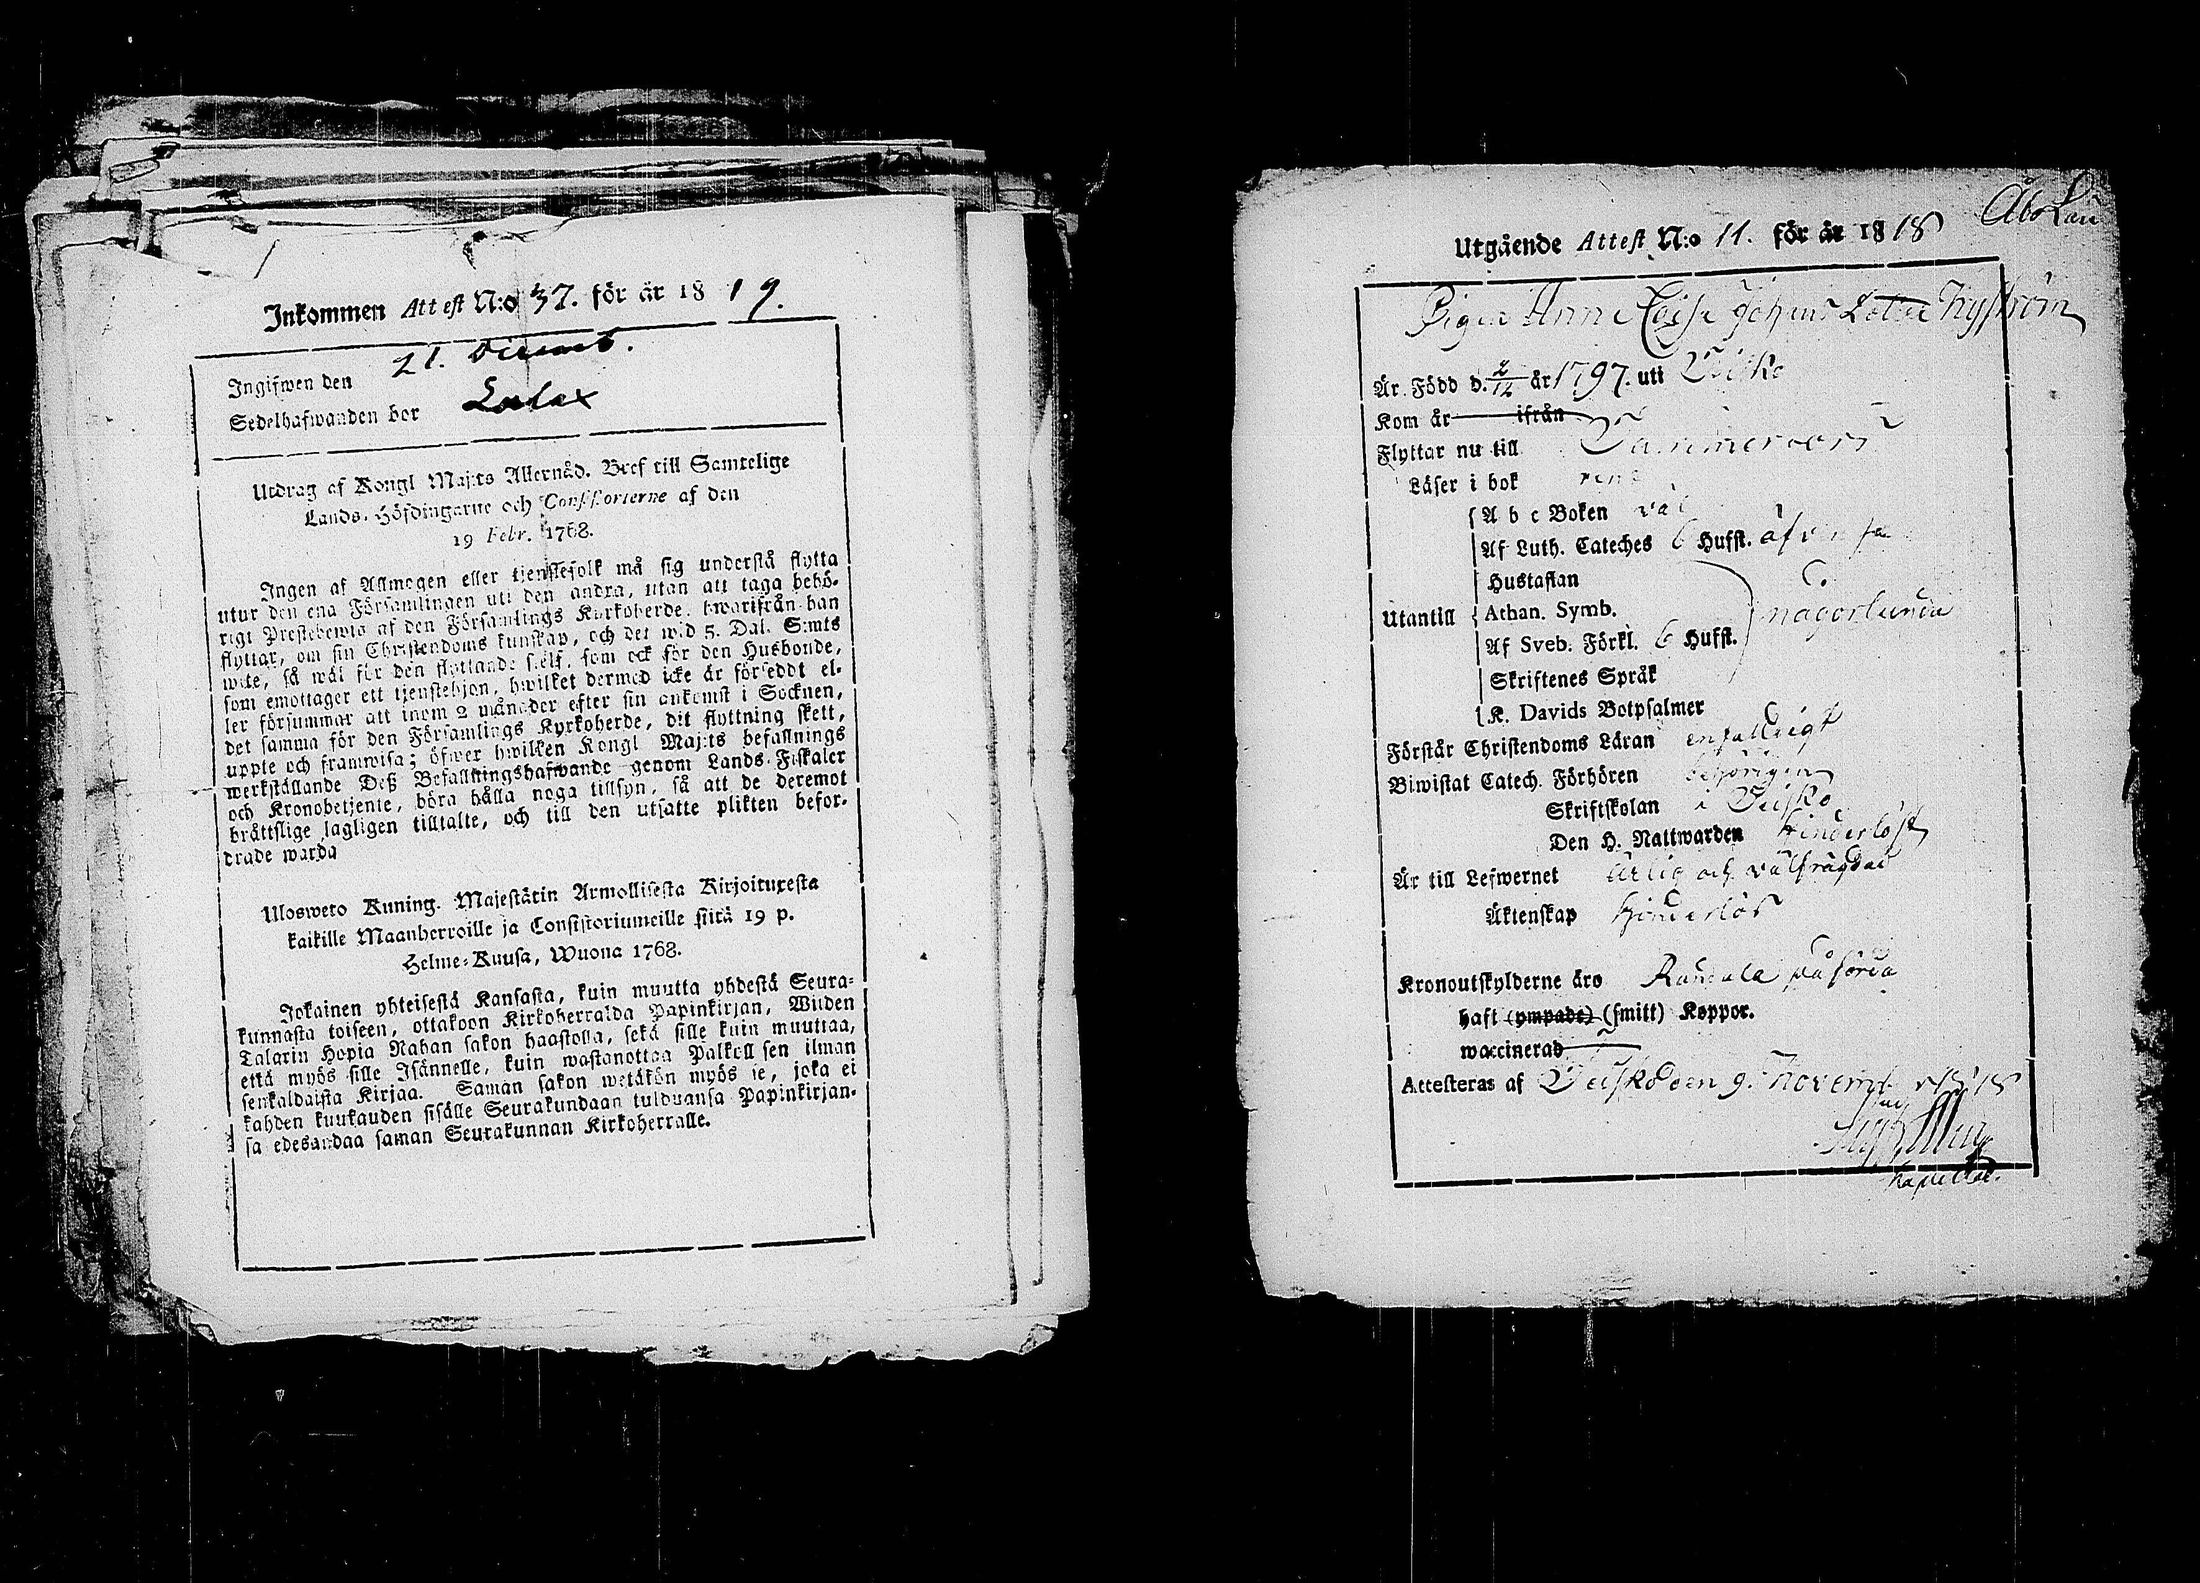 Inkommen Attest N:o 37. för år 1819.
Ingifwen den 21. Decemb.
Sedelhafwanden bor Lalax
Utdrag af Kongl Maj:ts Allernåd. Bref till Samtelige
Lands-Höfdingarne och Consistorierne af den
19 Febr. 1768.
Ingen af Allmogen eller tjenstefolk må sig understå flytta
utur den ena Församlingen uti den andra, utan att taga behö-
rigt Prestebewis af den Församlings Kyrkoherde, hwarifrån han
flyttar, om sin Christendoms kunskap, och det wid 5. Dal. S:mts
wite, så wäl för den flyttande sjelf, som ock för den Husbonde,
som emottager ett tjenstehjon, hwilket dermed icke är försedt el-
ler försummar att inom 2 månader efter sin ankomst i Socknen,
det samma för den Församlings Kyrkoherde, dit flyttning skett,
uppte och framwisa; öfwer hwilken Kongl Maj:ts befallnings
werkställande Deß Befallningshafwande genom Lands-Fiskaler
och Kronobetjente, böra hålla noga tillsyn, så att de deremot
bråttslige lagligen tilltalte, och till den utsatte plikten befor-
drade warda
Ulosweto Kuning. Majestätin Armollisesta Kirjoituxesta
kaikille Maanherroille ja Consistoriumeille siitä 19 p.
Helme-Kuusa, Wuona 1768.
Jokainen yhteisestä Kansasta, kuin muutta yhdestä Seura-
kunnasta toiseen, ottakoon Kirkoherralda Papinkirjan, Wiiden
Talarin Hopia Rahan sakon haastolla, sekä sille kuin muuttaa,
että myös sille Isännelle, kuin wastanottaa Palkollisen ilman
senkaldaista Kirjaa. Saman sakon wetäkön myös se, joka ei
kahden kuukauden sisälle Seurakundaan tulduansa Papinkirjan-
sa edesandaa saman Seurakunnan Kirkoherralle.
Åbo Län
Utgående Attest N:o 11. för år 1818
Pigan Anna Lovisa Johans Lotter Nyström
Är Född d. 2/12 år 1797. uti Teisko
Kom år ifrån
Flyttar nu till Tammerfors
Läser i bok rent
A b c Boken väl
Af Luth. Cateches 6 Hufst. äfven så
Hustaflan
Utantill Athan. Symb. någorlunda
Af Sveb. Förkl. 6 Hufst.
Skriftenes Språk
K. Davids Botpsalmer
Förstår Christendoms Läran enfalldigt
Biwistat Catech. Förhören behörigen
Skriftskolan i Teisko
Den H. Nattwarden hinderlöst
Är till Lefwernet ärlig och välfrägdad
Äktenskap hinderlös
Kronoutskylderne äro påförda
haft (ympade) (smitt) Koppor.
waccinerad
Attesteras af Teisko den 9. Novemb. 1818
Kapellan.